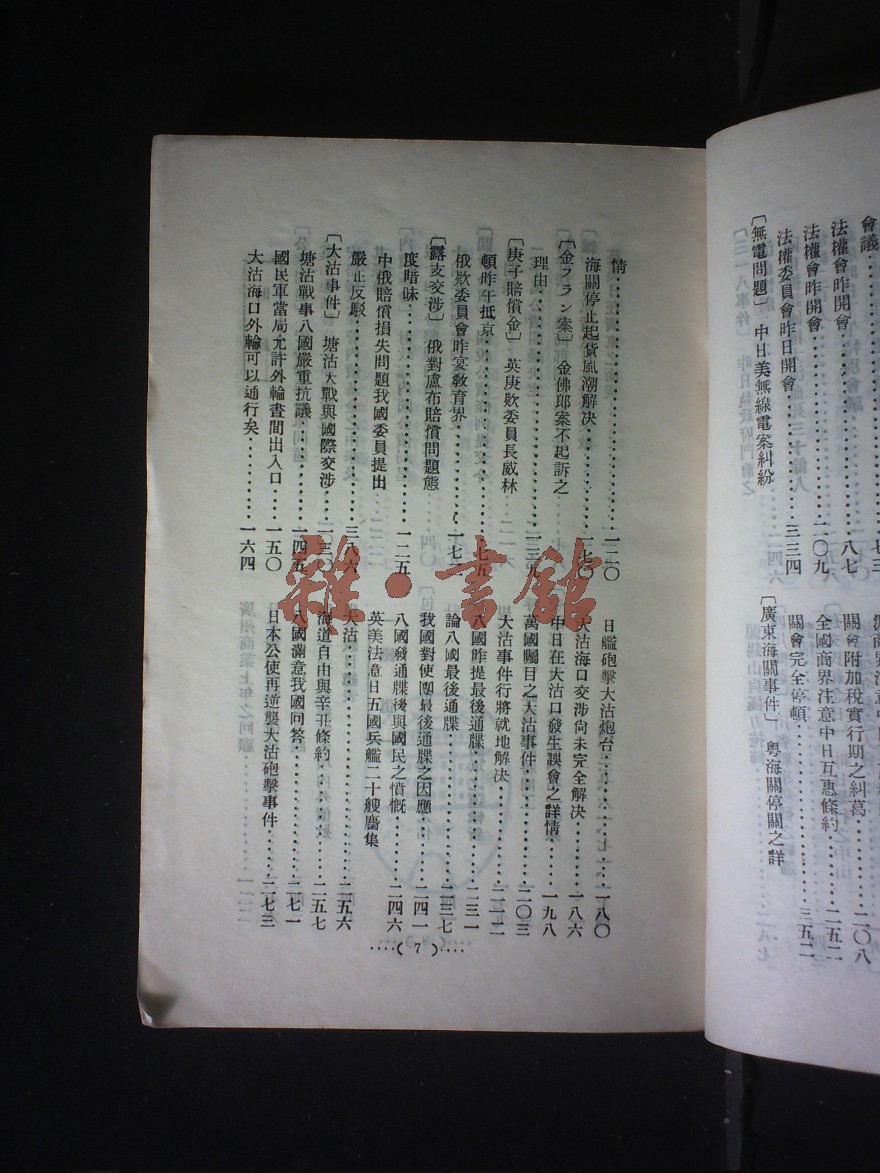 會議
法權會昨開會 八七
法權會昨開會 二〇九
法權委員會昨日開會 三三四
〔無電問題〕 中日美無線電案糾紛
關會附加稅實行期之糾葛 二〇八
全國商界注意中日互惠條約 二五二
關會完全停頓 三五二
〔廣東海關事件〕 粵海關停關之詳
情 一二〇
海關停止起貨風潮解決 一七〇
〔金フラン案〕 金佛郎案不起訴之
理由 一三九
〔庚子賠償金〕 英庚欵委員長威林
頓昨午抵京 七五
俄欵委員會昨宴教育界
〔露支交涉〕 俄對盧布賠償問題態
度暗昧 一二五
中俄賠償損失問題我國委員提出
嚴正反駁 三八六
〔大沽事件〕 塘沽大戰與國際交涉 一三〇
塘沽戰事八國嚴重抗議 一四五
國民軍當局允許外輪晝間出入口 一五〇
大沽海口外輪可以通行矣 一六四
日艦砲擊大沽炮台 一八〇
大沽海口交涉尙未完全解決 一八六
中日在大沽口發生誤會之詳情 一九八
萬國矚目之大沽事件 二〇三
大沽事件行將就地解決 二一二
八國昨提最後通牒 二三一
論八國最後通牒 二三七
我國對使團最後通牒之因應 二四一
八國發通牒後與國民之憤慨 二四六
英美法意日五國兵艦二十艘麕集
大沽 二五六
海道自由與辛丑條約 二五七
八國滿意我國回答 二七一
日本公使再逆襲大沽砲擊事件 二七三
( 7 )
雜·書館